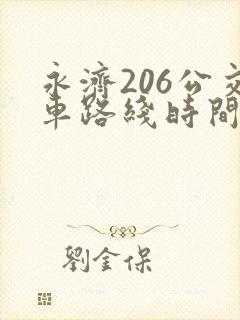 永濟206公交
車路綫時間
劉金保